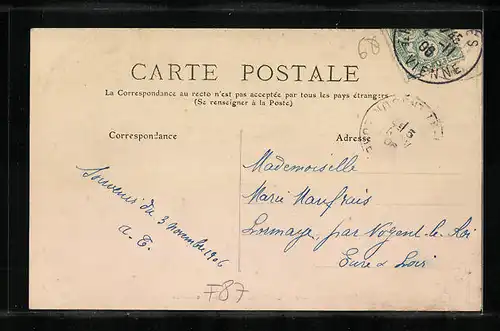 60
CARTE POSTALE
La Correspondance au recto n'est pas acceptée par tous les pays étrangers
(Se renseigner à la Poste)
Correspondance
Adresse
Souvenir du 3 novembre 1906
a. E.
Mademoiselle
Marie
Lormaye, par Nogent le Roi
Eure & Loir
VIENNE
F87